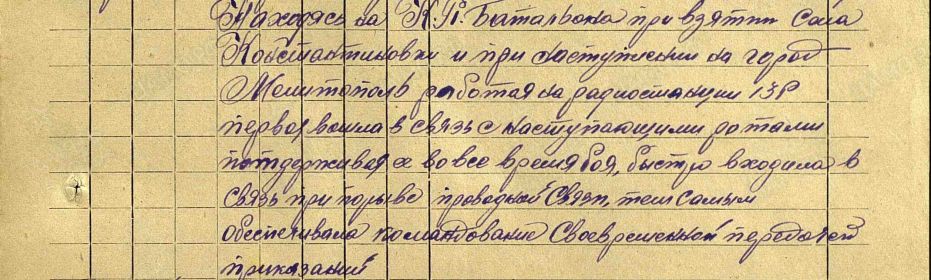 Находясь на К.П. Батальона при взятии Села
Константиновки и при наступлении на город
Мелитополь работая на радиостанции 13Р
первая вошла в связь с наступающими ротами
потдерживая ее во все время боя, быстро входила в
связь при порыве проводной связи, тем самым
обеспечивала командование Своевременной передачей
приказаний